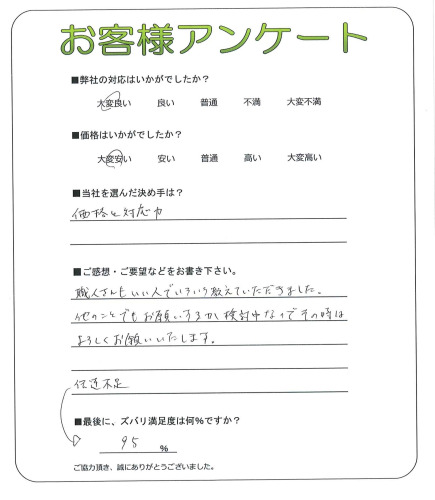 お客様アンケート
■弊社の対応はいかがでしたか？
大変良い 良い 普通 不満 大変不満
■価格はいかがでしたか？
大変安い 安い 普通 高い 大変高い
■当社を選んだ決め手は？
価格と対応力
■ご感想・ご要望などをお書き下さい。
職人さんもいい人でいろいろ教えていただきました。
他のことでもお願いするか検討中なのでその時は
よろしくお願いいたします。
伝達不足
■最後に、ズバリ満足度は何%ですか？
95 %
ご協力頂き、誠にありがとうございました。